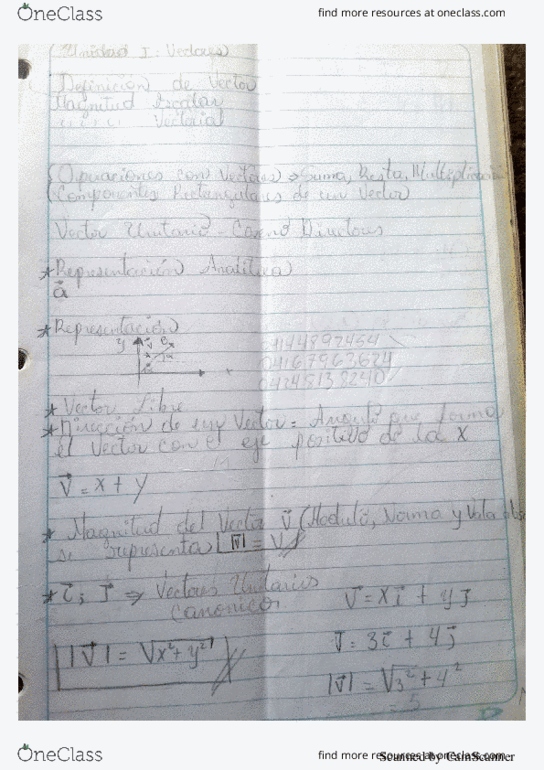 OneClass
find more resources at oneclass.com
(Unidad I: Vectores)
Definición de Vector
Magnitud Escalar
" " " Vectorial
Operaciones con Vectores → Suma, Resta, Multiplicación
Componentes Rectangulares de un Vector
Vector Unitario - Directores
* Representación Analítica
a⃗
* Representación
y
x
* Vector Libre
* Dirección de un Vector = Angulo que forma
el Vector con el eje positivo de la X
V⃗ = x + y
* Magnitud del Vector V⃗ (Modulo, Norma y Valor abs
se representa |V⃗| = V
* i⃗, j⃗ ⇒ Vectores Unitarios
canonicos
V⃗ = xi⃗ + yj⃗
V⃗ = 3i⃗ + 4j⃗
|V⃗| = √x²+y²
|V⃗| = √3²+4²
= 5
OneClass
find more resources at oneclass.com
Scanned by CamScanner